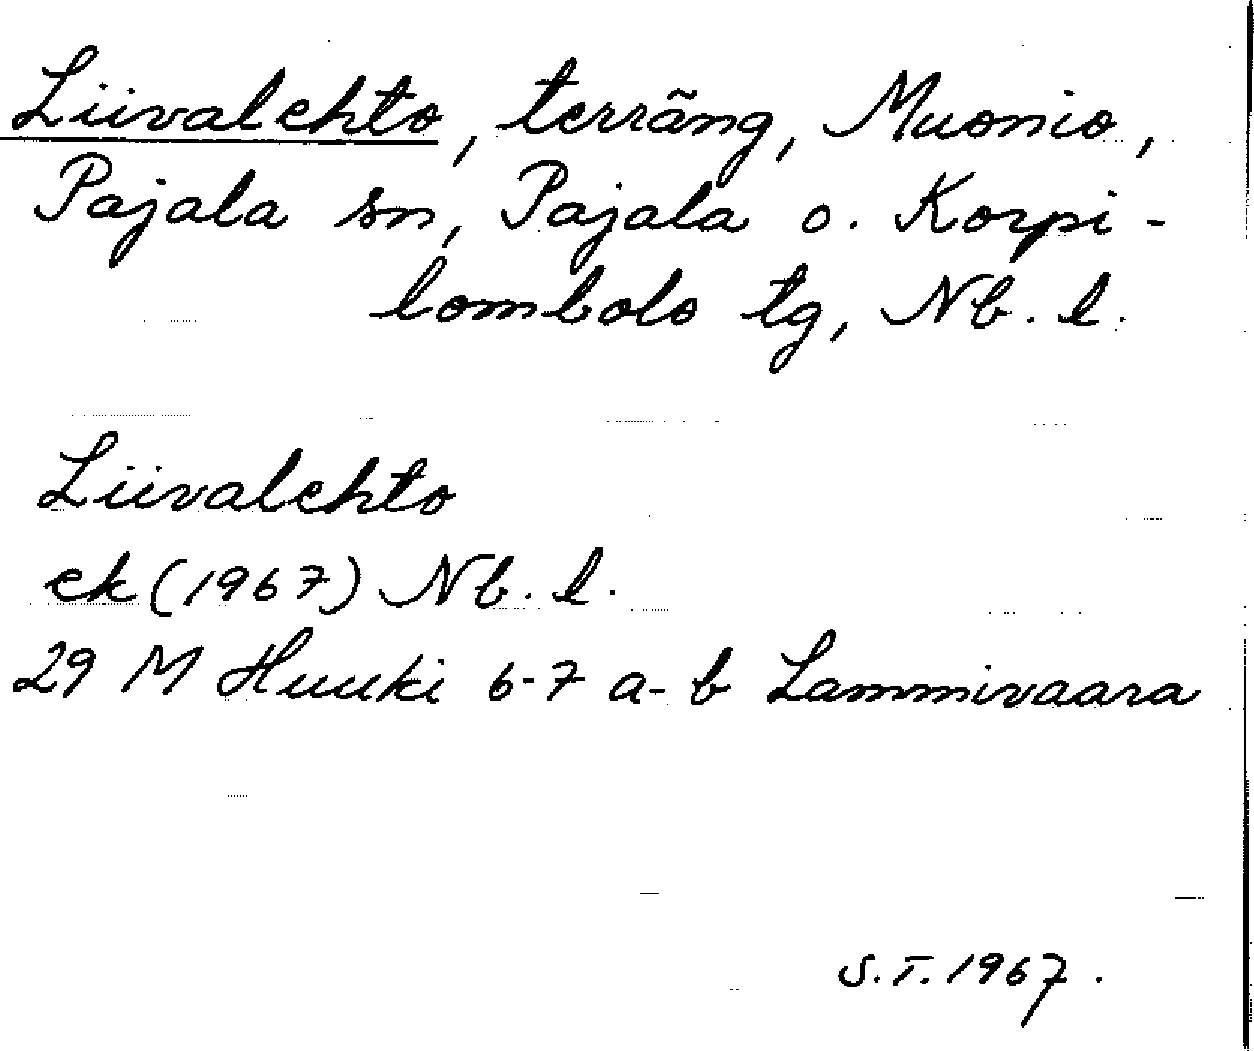 Liivalehto, terräng, Muonio,
Pajala sn, Pajala o. Korpi-
lombolo tg, Nb. l.
Liivalehto
ek (1967) Nb. l.
29 M Huuki 6-7 a-b Lammivaara
S.T. 1967.